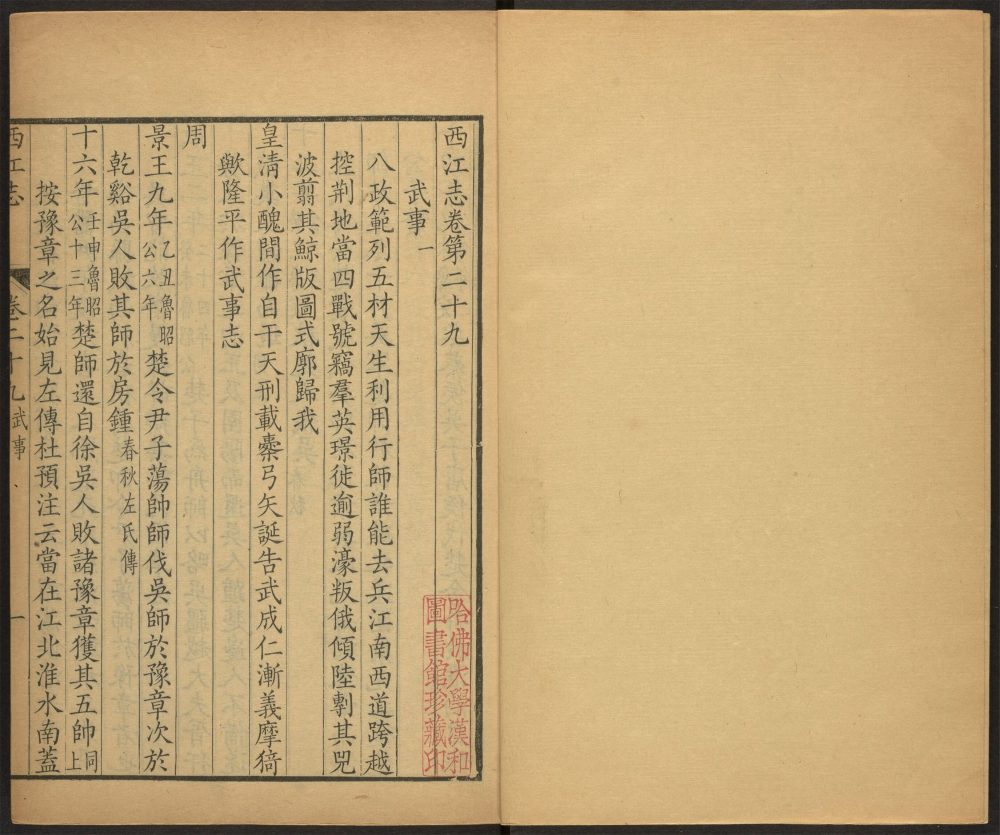 西江志卷第二十九
武事一
八政範列五材天生利用行師誰能去兵江南西道跨越
控荆地當四戰號竊羣英璟徙逾弱濠叛俄傾陸剸其兕
波翦其鯨版圖式廓歸我
皇清小醜間作自干天刑載櫜弓矢誕告武成仁漸義摩猗
歟隆平作武事志
周
景王九年乙丑魯昭公六年楚令尹子蕩帥師伐吳師於豫章次於
乾谿吳人敗其師於房鍾春秋左氏傳
十六年壬申魯昭公十三年楚師還自徐吳人敗諸豫章獲其五帥同上
按豫章之名始見左傳杜預注云當在江北淮水南蓋
西江志 卷二十九 武事 一
哈佛大學漢和
圖書館珍藏印